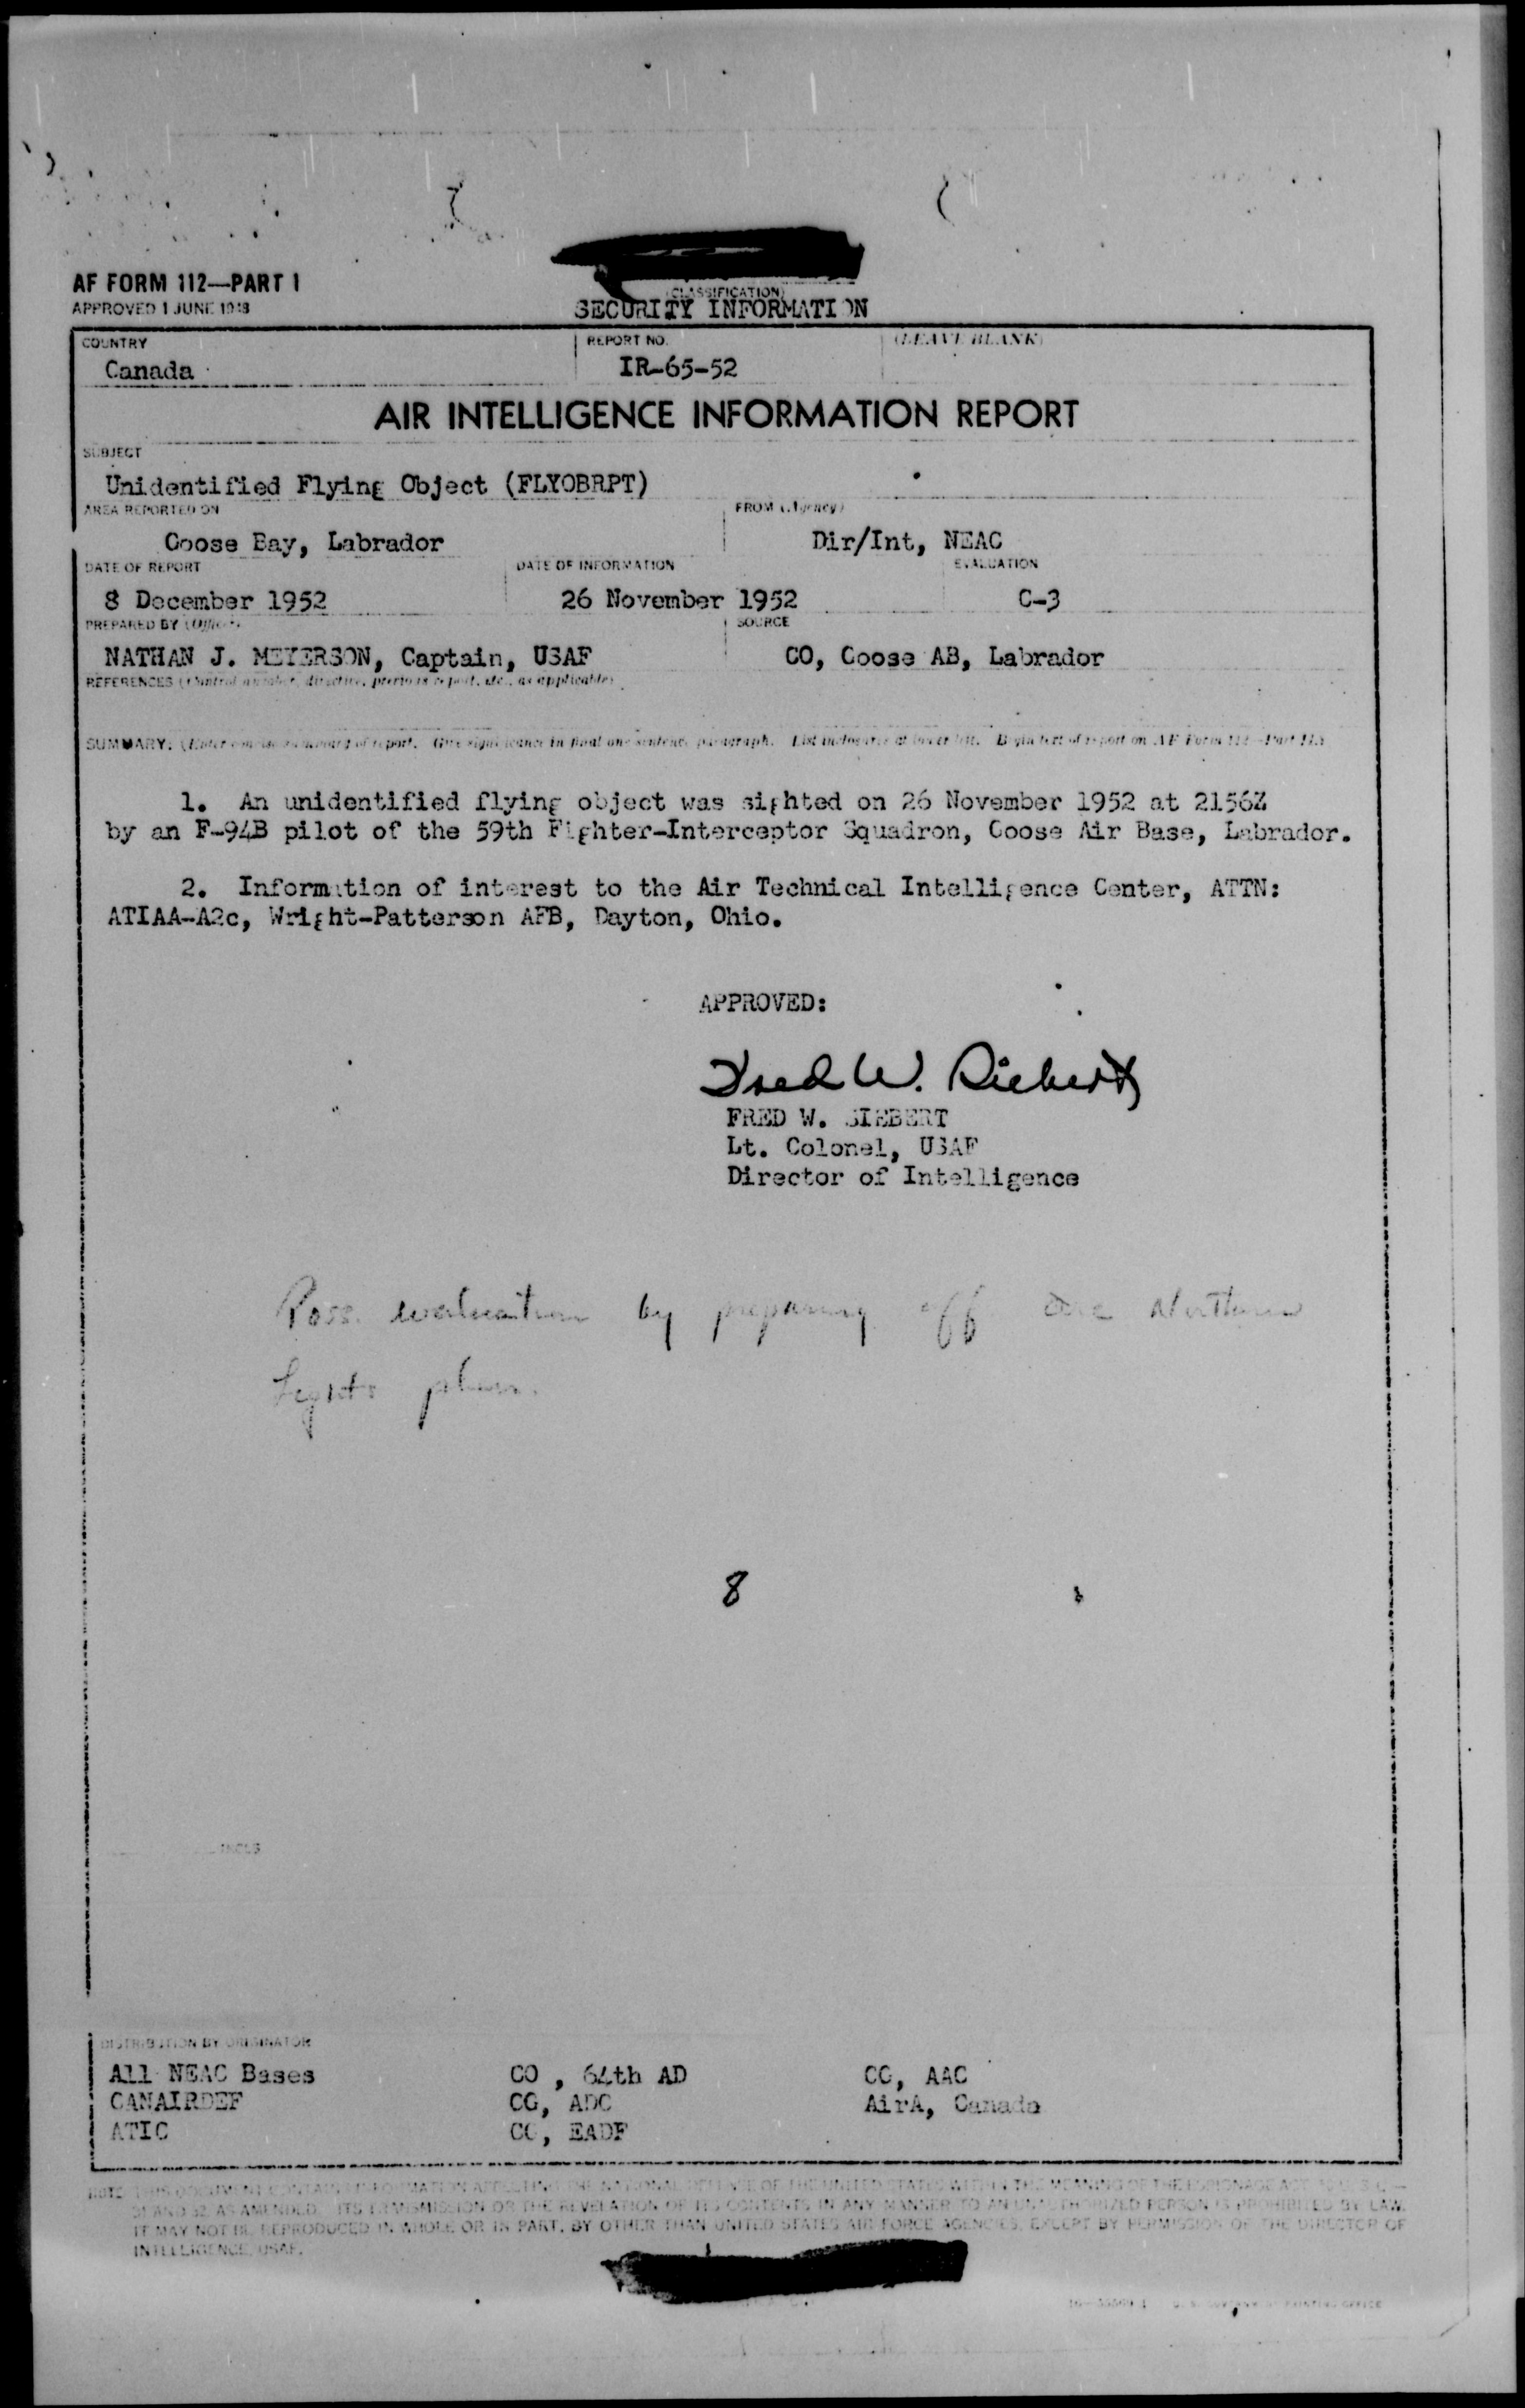 AF FORM 112—PART I
APPROVED 1 JUNE 1948
(CLASSIFICATION)
SECURITY INFORMATION
COUNTRY
Canada
REPORT NO.
IR-65-52
(LEAVE BLANK)
AIR INTELLIGENCE INFORMATION REPORT
SUBJECT
Unidentified Flying Object (FLYOBRPT)
AREA REPORTED ON
Goose Bay, Labrador
FROM (Agency)
Dir/Int, NEAC
DATE OF REPORT
8 December 1952
DATE OF INFORMATION
26 November 1952
EVALUATION
C-3
PREPARED BY (Officer)
NATHAN J. MEYERSON, Captain, USAF
SOURCE
CO, Goose AB, Labrador
REFERENCES (Control number, directive, previous report, etc., as applicable)
SUMMARY: (Enter concise summary of report. Give significance in final one-sentence paragraph. List inclosures at lower left. Begin text of report on AF Form 112—Part II.)
1. An unidentified flying object was sighted on 26 November 1952 at 2156Z
by an F-94B pilot of the 59th Fighter-Interceptor Squadron, Goose Air Base, Labrador.
2. Information of interest to the Air Technical Intelligence Center, ATTN:
ATIAA-A2c, Wright-Patterson AFB, Dayton, Ohio.
APPROVED:
Fred W. Siebert
FRED W. SIEBERT
Lt. Colonel, USAF
Director of Intelligence
Poss. evaluation by preparing off Northern
Lights
8
INCLS
DISTRIBUTION BY ORIGINATOR
All NEAC Bases
CANAIRDEF
ATIC
CO , 64th AD
CG, ADC
CG, EADF
CG, AAC
AirA, Canada
NOTE: THIS DOCUMENT CONTAINS INFORMATION AFFECTING THE NATIONAL DEFENSE OF THE UNITED STATES WITHIN THE MEANING OF THE ESPIONAGE ACT, 50 U. S. C.—
31 AND 32, AS AMENDED. ITS TRANSMISSION OR THE REVELATION OF ITS CONTENTS IN ANY MANNER TO AN UNAUTHORIZED PERSON IS PROHIBITED BY LAW.
IT MAY NOT BE REPRODUCED IN WHOLE OR IN PART, BY OTHER THAN UNITED STATES AIR FORCE AGENCIES, EXCEPT BY PERMISSION OF THE DIRECTOR OF
INTELLIGENCE, USAF.
U. S. GOVERNMENT PRINTING OFFICE